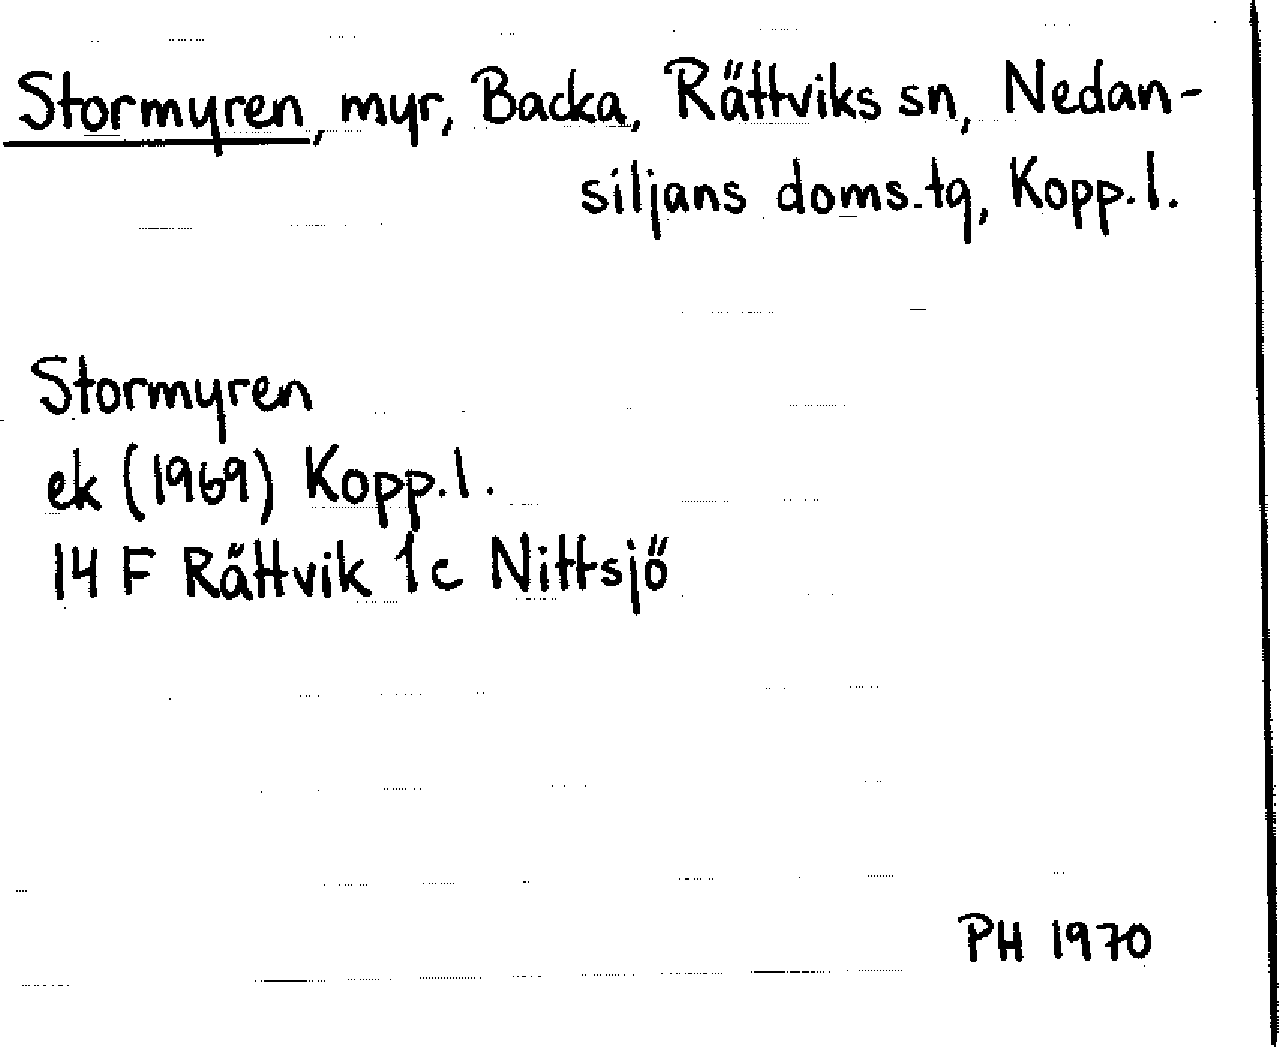 Stormyren, myr, Backa, Rättviks sn, Nedan-
siljans doms.tg, Kopp.l.
Stormyren
ek (1969) Kopp.l.
14 F Rättvik 1c Nittsjö
PH 1970